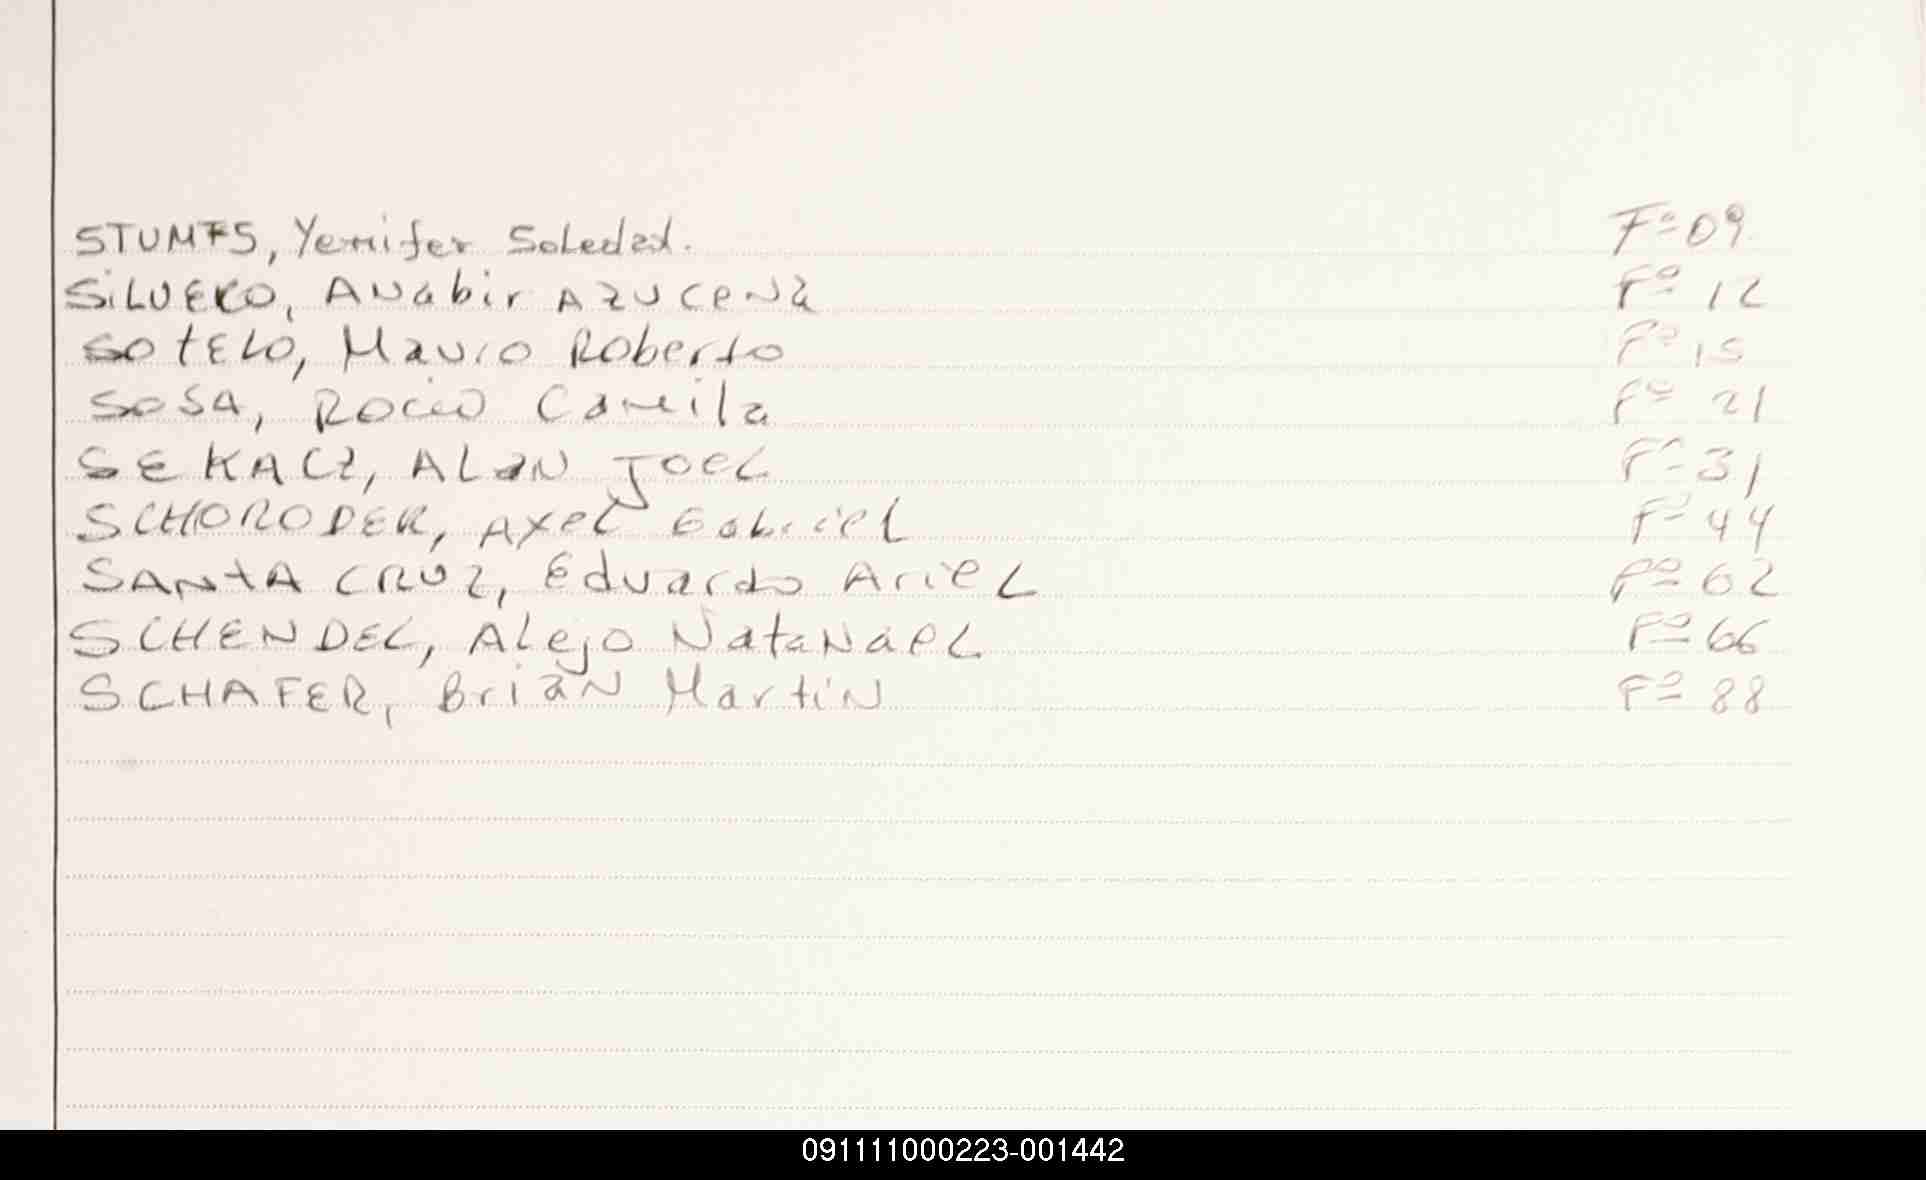 STUMFS, Yemifer Soledad. Fº 09
SILVERO, Anabir Azucena Fº 12
SOTELO, Mauro Roberto Fº 15
SOSA, Rocio Camila Fº 21
SEKACZ, ALAN JOEL Fº 31
SCHORODER, Axel Gabriel Fº 44
SANTA CRUZ, Eduardo Ariel Fº 62
SCHENDEL, Alejo Natanael Fº 66
SCHAFER, Brian Martin Fº 88
091111000223-001442